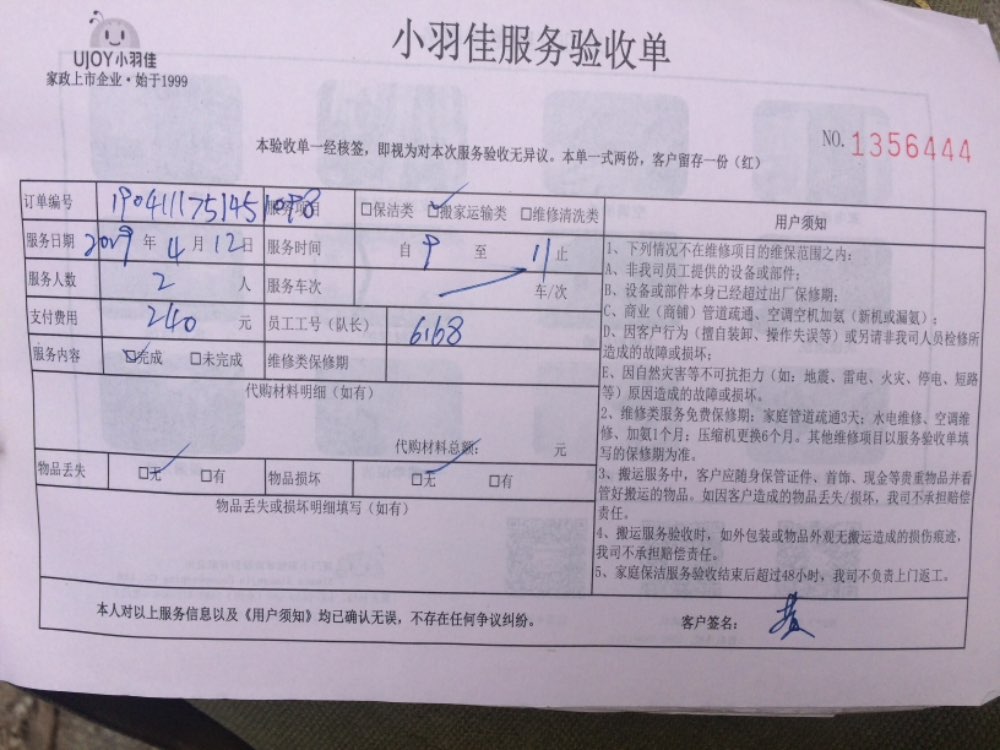 UJOY小羽佳
家政上市企业·始于1999
小羽佳服务验收单
NO. 1356444
本验收单一经核签，即视为对本次服务验收无异议。本单一式两份，客户留存一份（红）
订单编号 1904111751451098 服务项目 □保洁类 □搬家运输类 □维修清洗类
服务日期 2019 年 4 月 12 日 服务时间 自 9 至 11 止
服务人数 2 人 服务车次 车/次
支付费用 240 元 员工工号（队长） 6168
服务内容 □完成 □未完成 维修类保修期
代购材料明细（如有）
代购材料总额： 元
物品丢失 □无 □有 物品损坏 □无 □有
物品丢失或损坏明细填写（如有）
用户须知
1、下列情况不在维修项目的维保范围之内：
A、非我司员工提供的设备或部件；
B、设备或部件本身已经超过出厂保修期；
C、商业（商铺）管道疏通、空调空机加氨（新机或漏氨）；
D、因客户行为（擅自装卸、操作失误等）或另请非我司人员检修所
造成的故障或损坏；
E、因自然灾害等不可抗拒力（如：地震、雷电、火灾、停电、短路
等）原因造成的故障或损坏。
2、维修类服务免费保修期：家庭管道疏通3天；水电维修、空调维
修、加氨1个月；压缩机更换6个月。其他维修项目以服务验收单填
写的保修期为准。
3、搬运服务中，客户应随身保管证件、首饰、现金等贵重物品并看
管好搬运的物品。如因客户造成的物品丢失/损坏，我司不承担赔偿
责任。
4、搬运服务验收时，如外包装或物品外观无搬运造成的损伤痕迹，
我司不承担赔偿责任。
5、家庭保洁服务验收结束后超过48小时，我司不负责上门返工。
本人对以上服务信息以及《用户须知》均已确认无误，不存在任何争议纠纷。
客户签名：